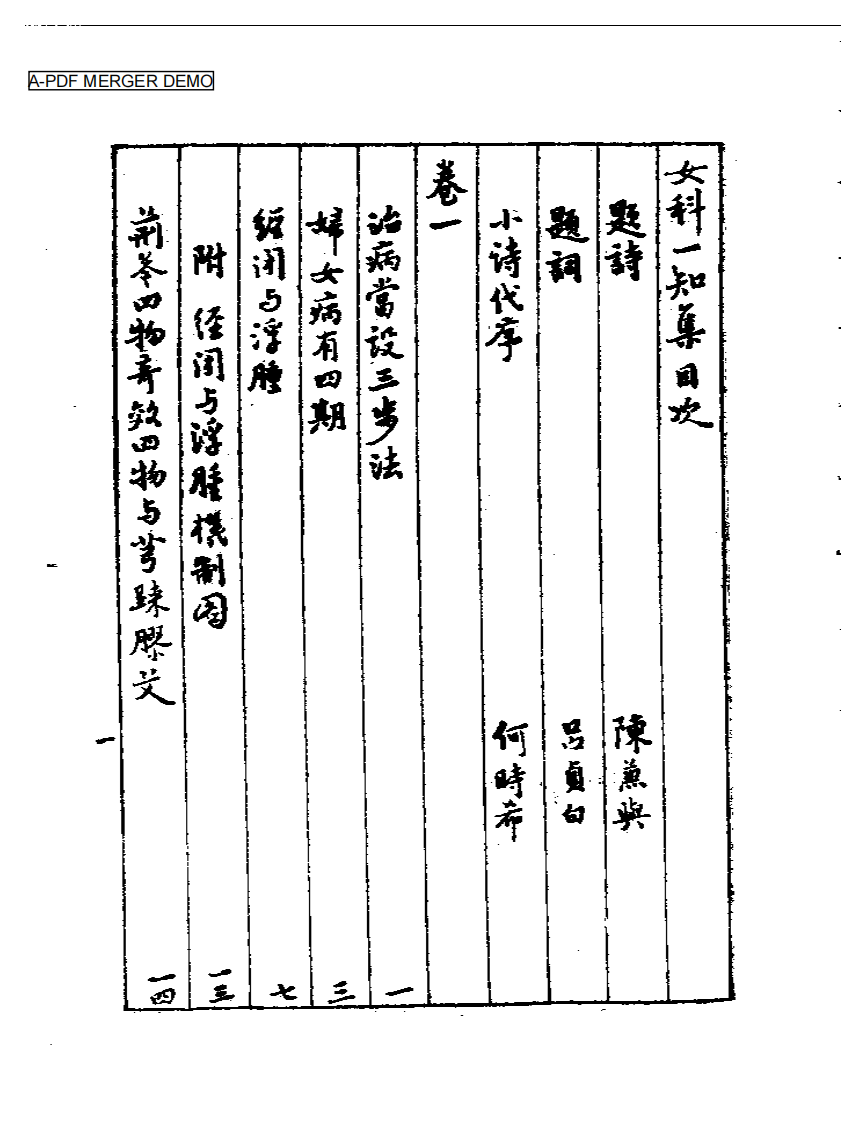 A-PDF MERGER DEMO
女科一知集目次
題詩 陳兼與
題詞 呂貞白
小诗代序 何時希
卷一
治病當设三步法 一
婦女病有四期 三
經闭与浮腫 七
附 径闭与浮腫機制图 一三
荊芩四物奇效四物与芎踈膠艾 一四
一